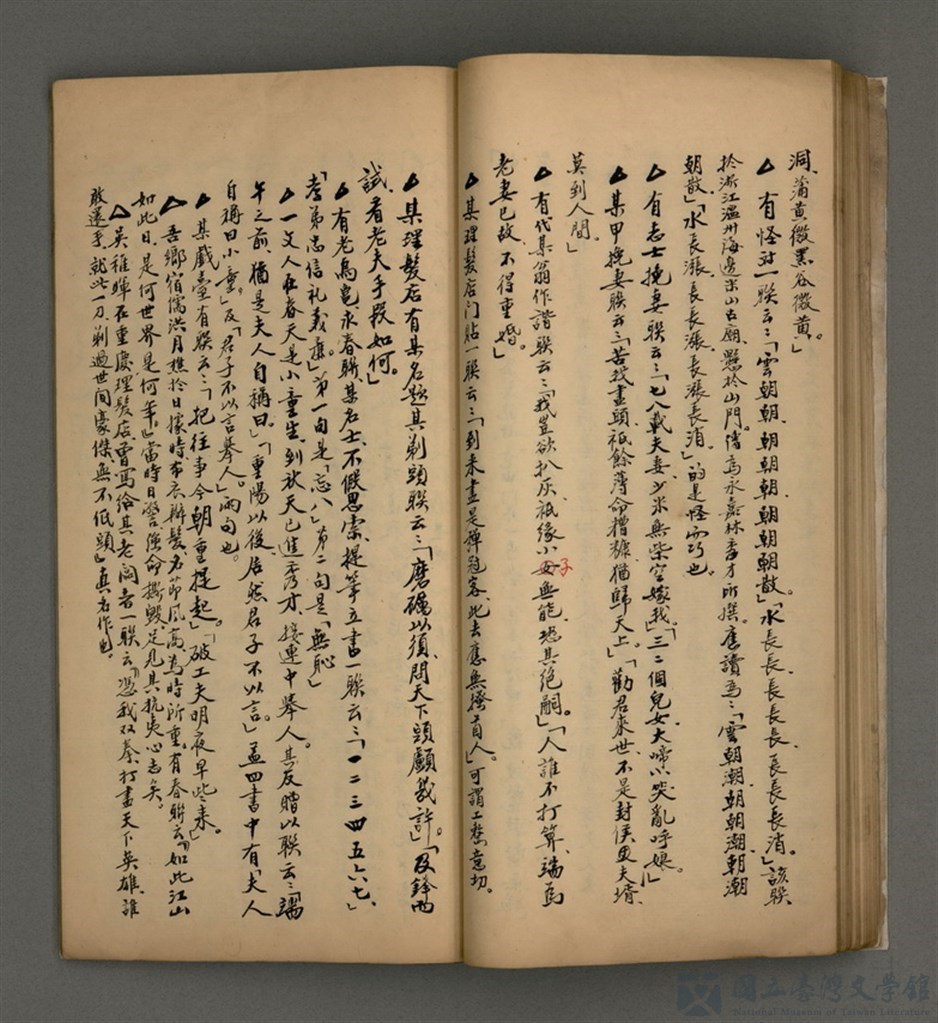 洞蒲黄微黑谷微黄。」
△有怪对一联云：「雲朝朝、朝朝朝、朝朝朝散。」「水長長、長長長、長長長消。」該联
於浙江温州海邊　山古廟、懸於山門。傳為永嘉林秀才所撰。應讀為：「雲朝潮、朝朝潮、朝潮
朝散。」「水長漲、長長漲、長漲長消。」的是怪而巧也。
△有志士挽妻联云：「七八載夫妻、少米無柴空嫁我。」「三二個兒女、大啼小哭亂呼娘。」
△某甲挽妻联云：「苦我畫頭、祇餘薄命糟糠、猶歸天上。」「勸君來世、不是封侯夫壻、
莫到人間。」
△有代某翁作諧联云：「我豈欲扒灰、祇缘小子無能、恐其絕嗣。」「人誰不打算、端為
老妻已故、不得重婚。」
△某理髮店门貼一联云：「到来盡是彈冠客、此去應無搔首人。」可謂工整意切。
△某理髮店有某名題其剃頭联云：「磨礪以須、問天下頭顱幾許。」「及鋒而
試、看老夫手段如何。」
△有老烏龜求春联、某名士、不假思索、提筆立書一联云：「一二三四五六七、」
「孝弟忠信礼義廉。」第一句是「忘八」第二句是「無恥」
△一文人在春天是小童生、到秋天已進秀才、接連中举人。其友贈以联云：「端
午之前、猶是夫人自稱曰。」「重陽以後、居然君子不以言。」孟四書中有「夫人
自稱曰小童。」及「君子不以言舉人。」兩句也。
△某戲臺有联云：「把往事今朝重提起。」「破工夫明夜早些来。」
△吾鄉宿儒洪月樵於日據時布衣辮髮、名節風高、為時所重。有春联云：「如此江山
如此日、是何世界是何年。」當時日警强命撕毀、足見其抗夷心志矣。
△吳稚暉在重慶理髮店、曾寫给其老闆者一联云：「憑我双拳、打盡天下英雄、誰
敢還手。就此一刀、剃過世间豪傑、無不低頭。」真名作也。
國立臺灣文學館
National Museum of Taiwan Literature